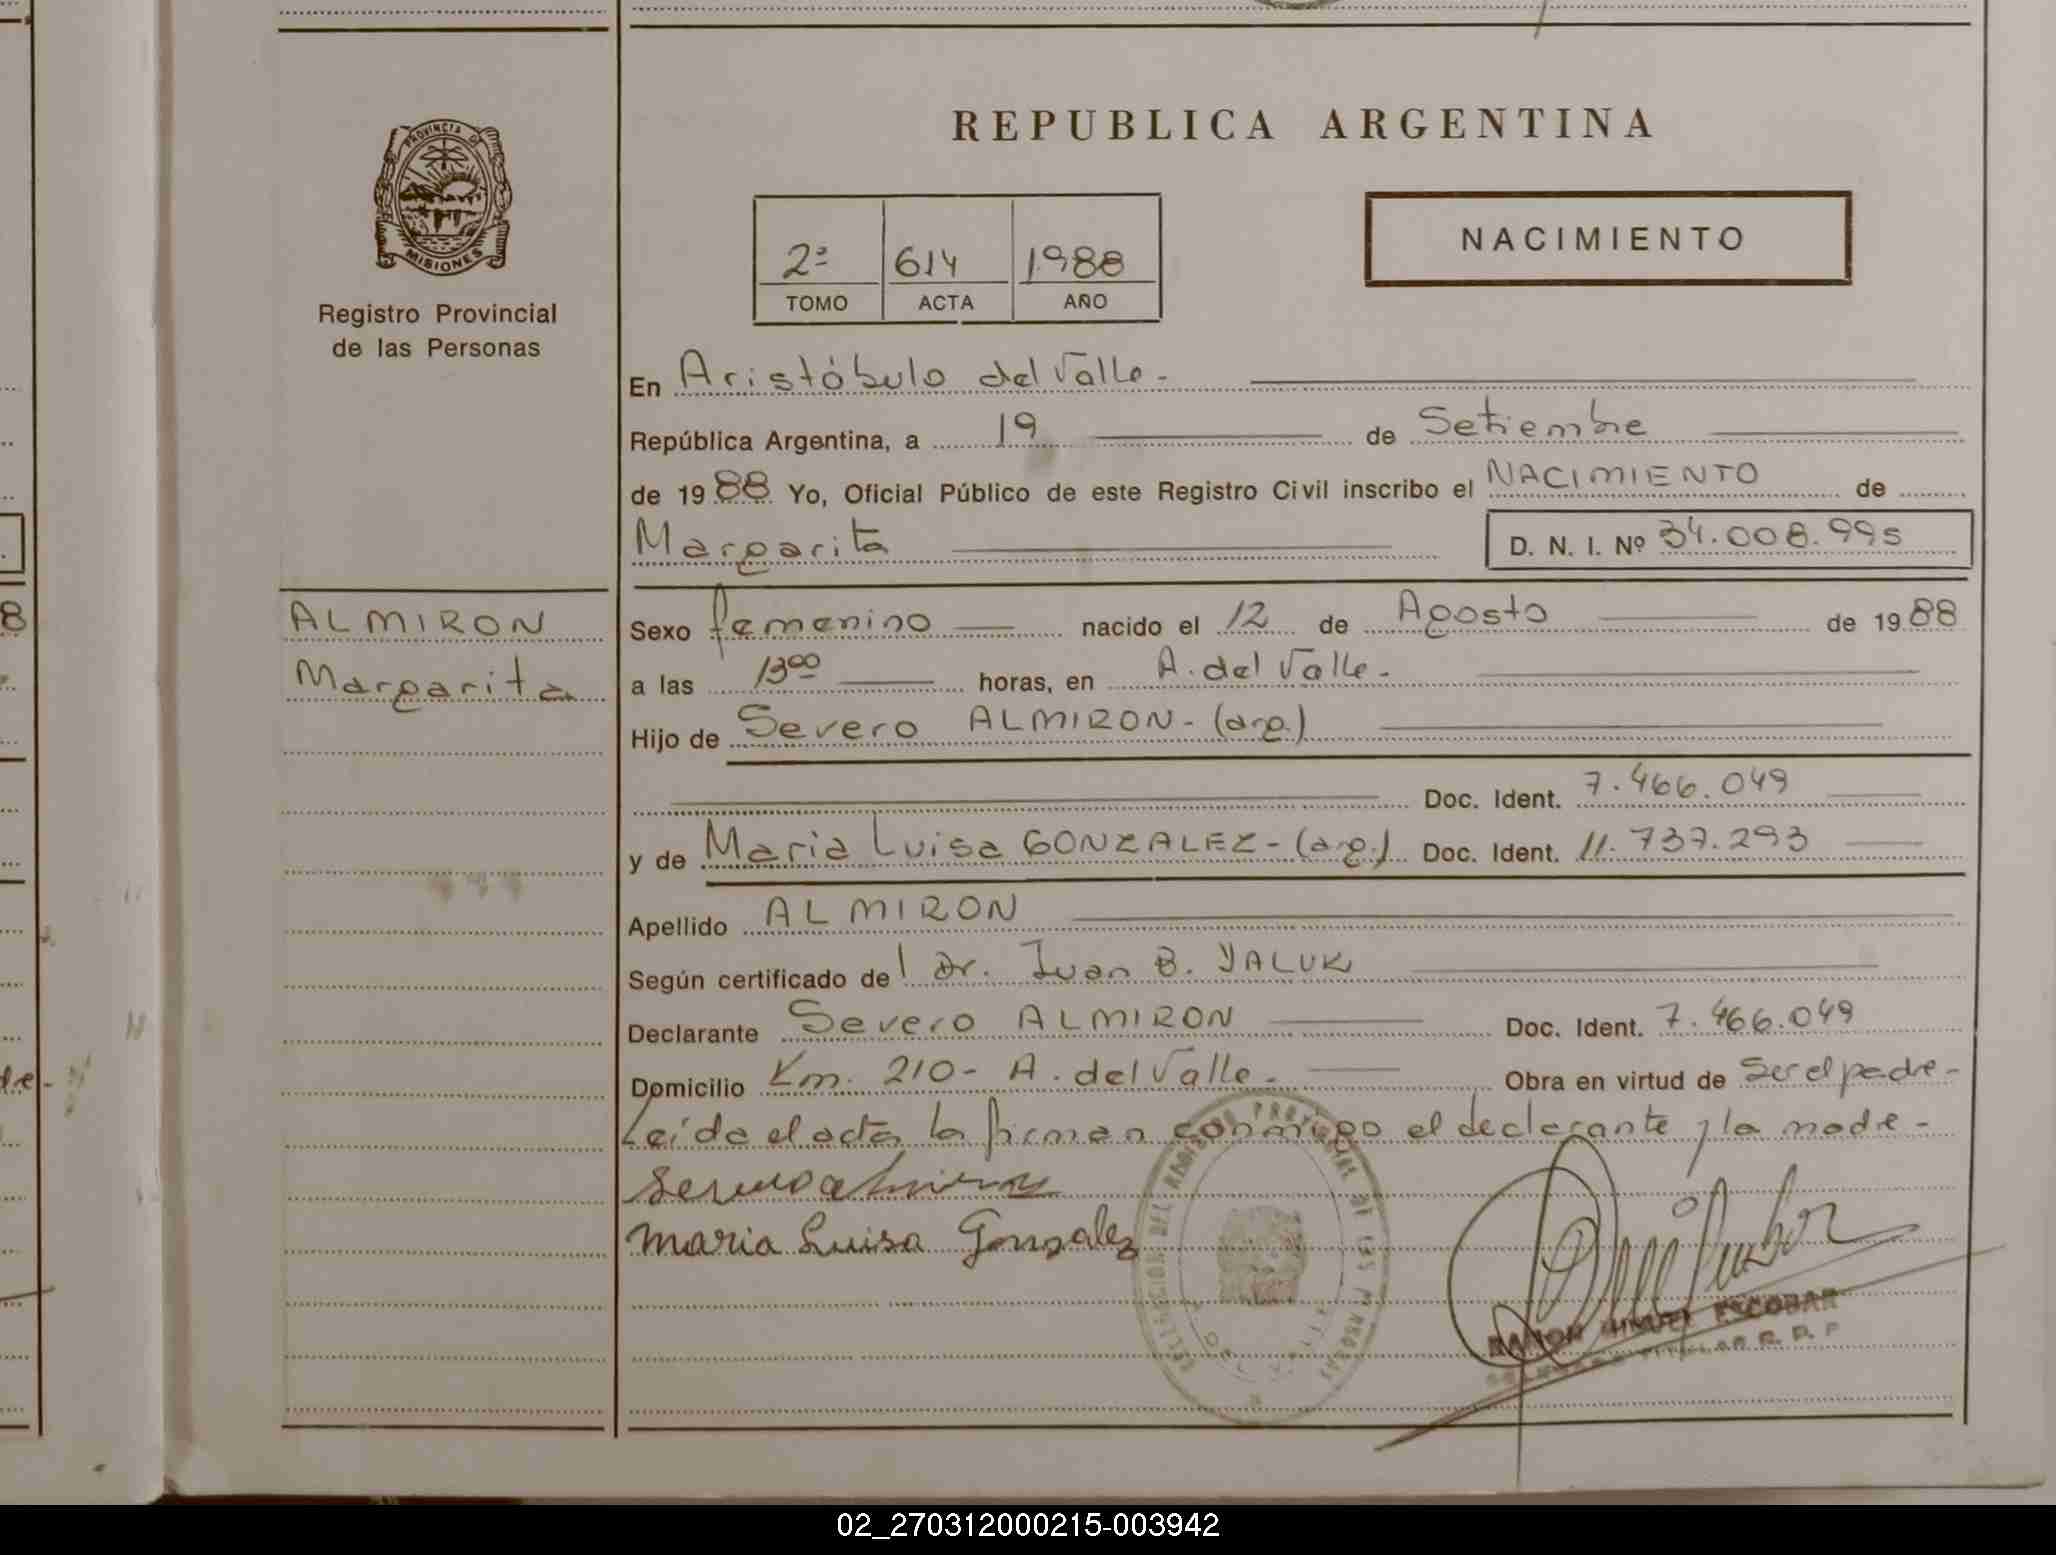 REPUBLICA ARGENTINA
PROVINCIA DE
MISIONES
Registro Provincial
de las Personas
NACIMIENTO
2ª 614 1988
TOMO ACTA AÑO
En Aristóbulo del Valle-
República Argentina, a 19 de Setiembre
de 1988 Yo, Oficial Público de este Registro Civil inscribo el NACIMIENTO de
Margarita D. N. I. Nº 34.008.995
ALMIRON
Margarita
Sexo femenino nacido el 12 de Agosto de 1988
a las 13⁰⁰ horas, en A. del Valle-
Hijo de Severo ALMIRON- (arg.)
Doc. Ident. 7.466.049
y de Maria Luisa GONZALEZ- (arg.) Doc. Ident. 11.737.293
Apellido ALMIRON
Según certificado del Dr. Juan B. YALUK
Declarante Severo ALMIRON Doc. Ident. 7.466.049
Domicilio Km. 210- A. del Valle- Obra en virtud de Ser el padre-
Leída el acta la firman conmigo el declarante y la madre-
Severo almiron
maria Luisa Gonzalez
RAMON MIGUEL ESCOBAR
TITULAR R. P. P
DELEGACION DEL REGISTRO PROVINCIAL DE LAS PERSONAS
8
dre-
02_270312000215-003942